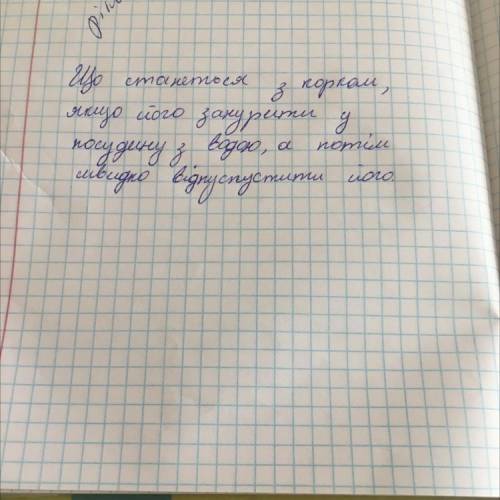 Що станеться з корком,
якщо його занурити у
посудину з водою, а потім
швидко відпуспустити його.